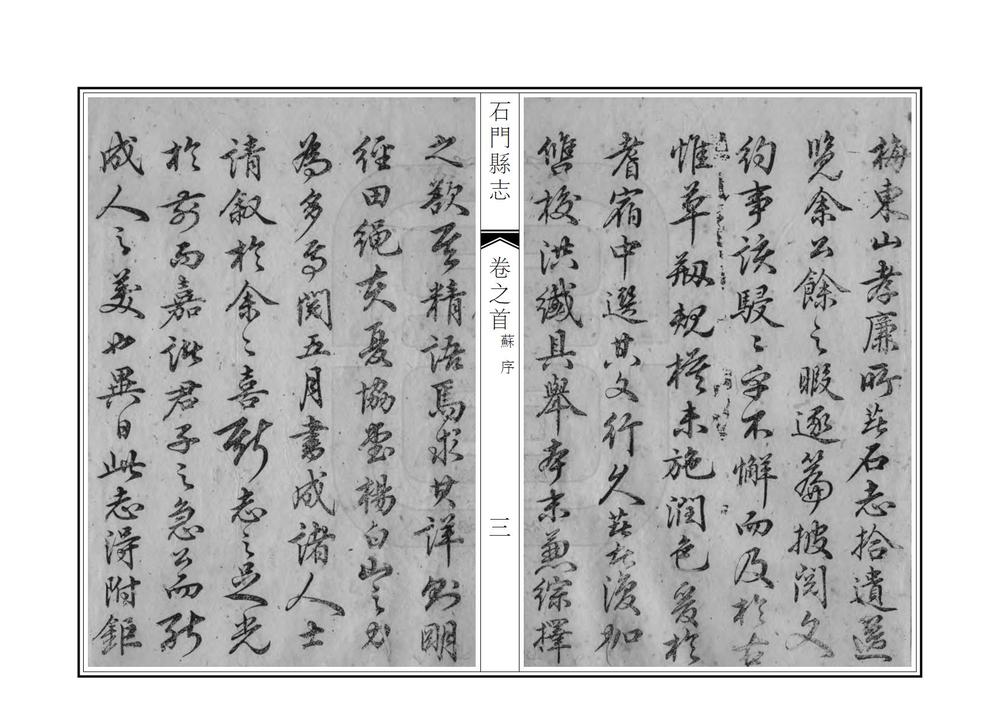 梅東山孝廉所著石志拾遺選
覽余公餘之暇逐篇披閱文
約事該駸駸乎不懈而及於古
惟草剏規模未施潤色爰於
耆宿中選其文行久著者復加
讐校洪纖具舉本末兼綜擇
石門縣志
卷之首
蘇序
三
之欲其精語焉求其詳則明
經田繩夫憂協臺楊白山之力
為多焉閱五月書成諸人士
請叙於余余喜斯志之足光
於前而嘉諸君子之急公而能
成人之美也異日此志得附鉅